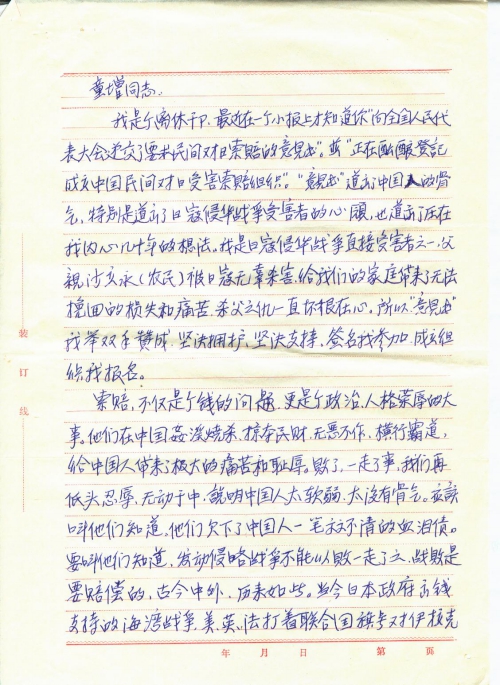 童增同志：
我是个离休干卩，最近在一个小报上才知道你"向全国人民代
表大会递交了要求民间对日索赔的意見书"。並"正在酝酿登記
成立中国民间对日受害索赔组织"。"意見书"道出了中国人的骨
气，特别是道出了日寇侵华战争受害者的心願，也道出了压在
我内心几十年的想法。我是日寇侵华战争直接受害者之一，父
親沙玄永（农民）被日寇无辜杀害，给我们的家庭带来了无法
挽回的损失和痛苦，杀父之仇一直怀恨在心。所以"意見书"
我举双手赞成，坚决拥护，坚决支持，签名我参加，成立组
织我报名。
索赔，不仅是个钱的问题，更是个政治、人格荣辱的大
事。他们在中国姦淫烧杀，掠夺民财，无恶不作，横行霸道，
给中国人带来了极大的痛苦和耻辱。败了，一走了事，我们再
低头忍辱，无动于中，说明中国人太软弱，太没有骨气。应该
叫他们知道，他们欠下了中国人一笔还不清的血泪债。
要叫他们知道，发动侵略战争不能以败一走了之，战败是
要赔偿的，古今中外，历来如此。当今日本政府出钱
支持的海湾战争，美、英、法打着联合国旗号对伊拉克
装
订
线
年 月 日 第 页